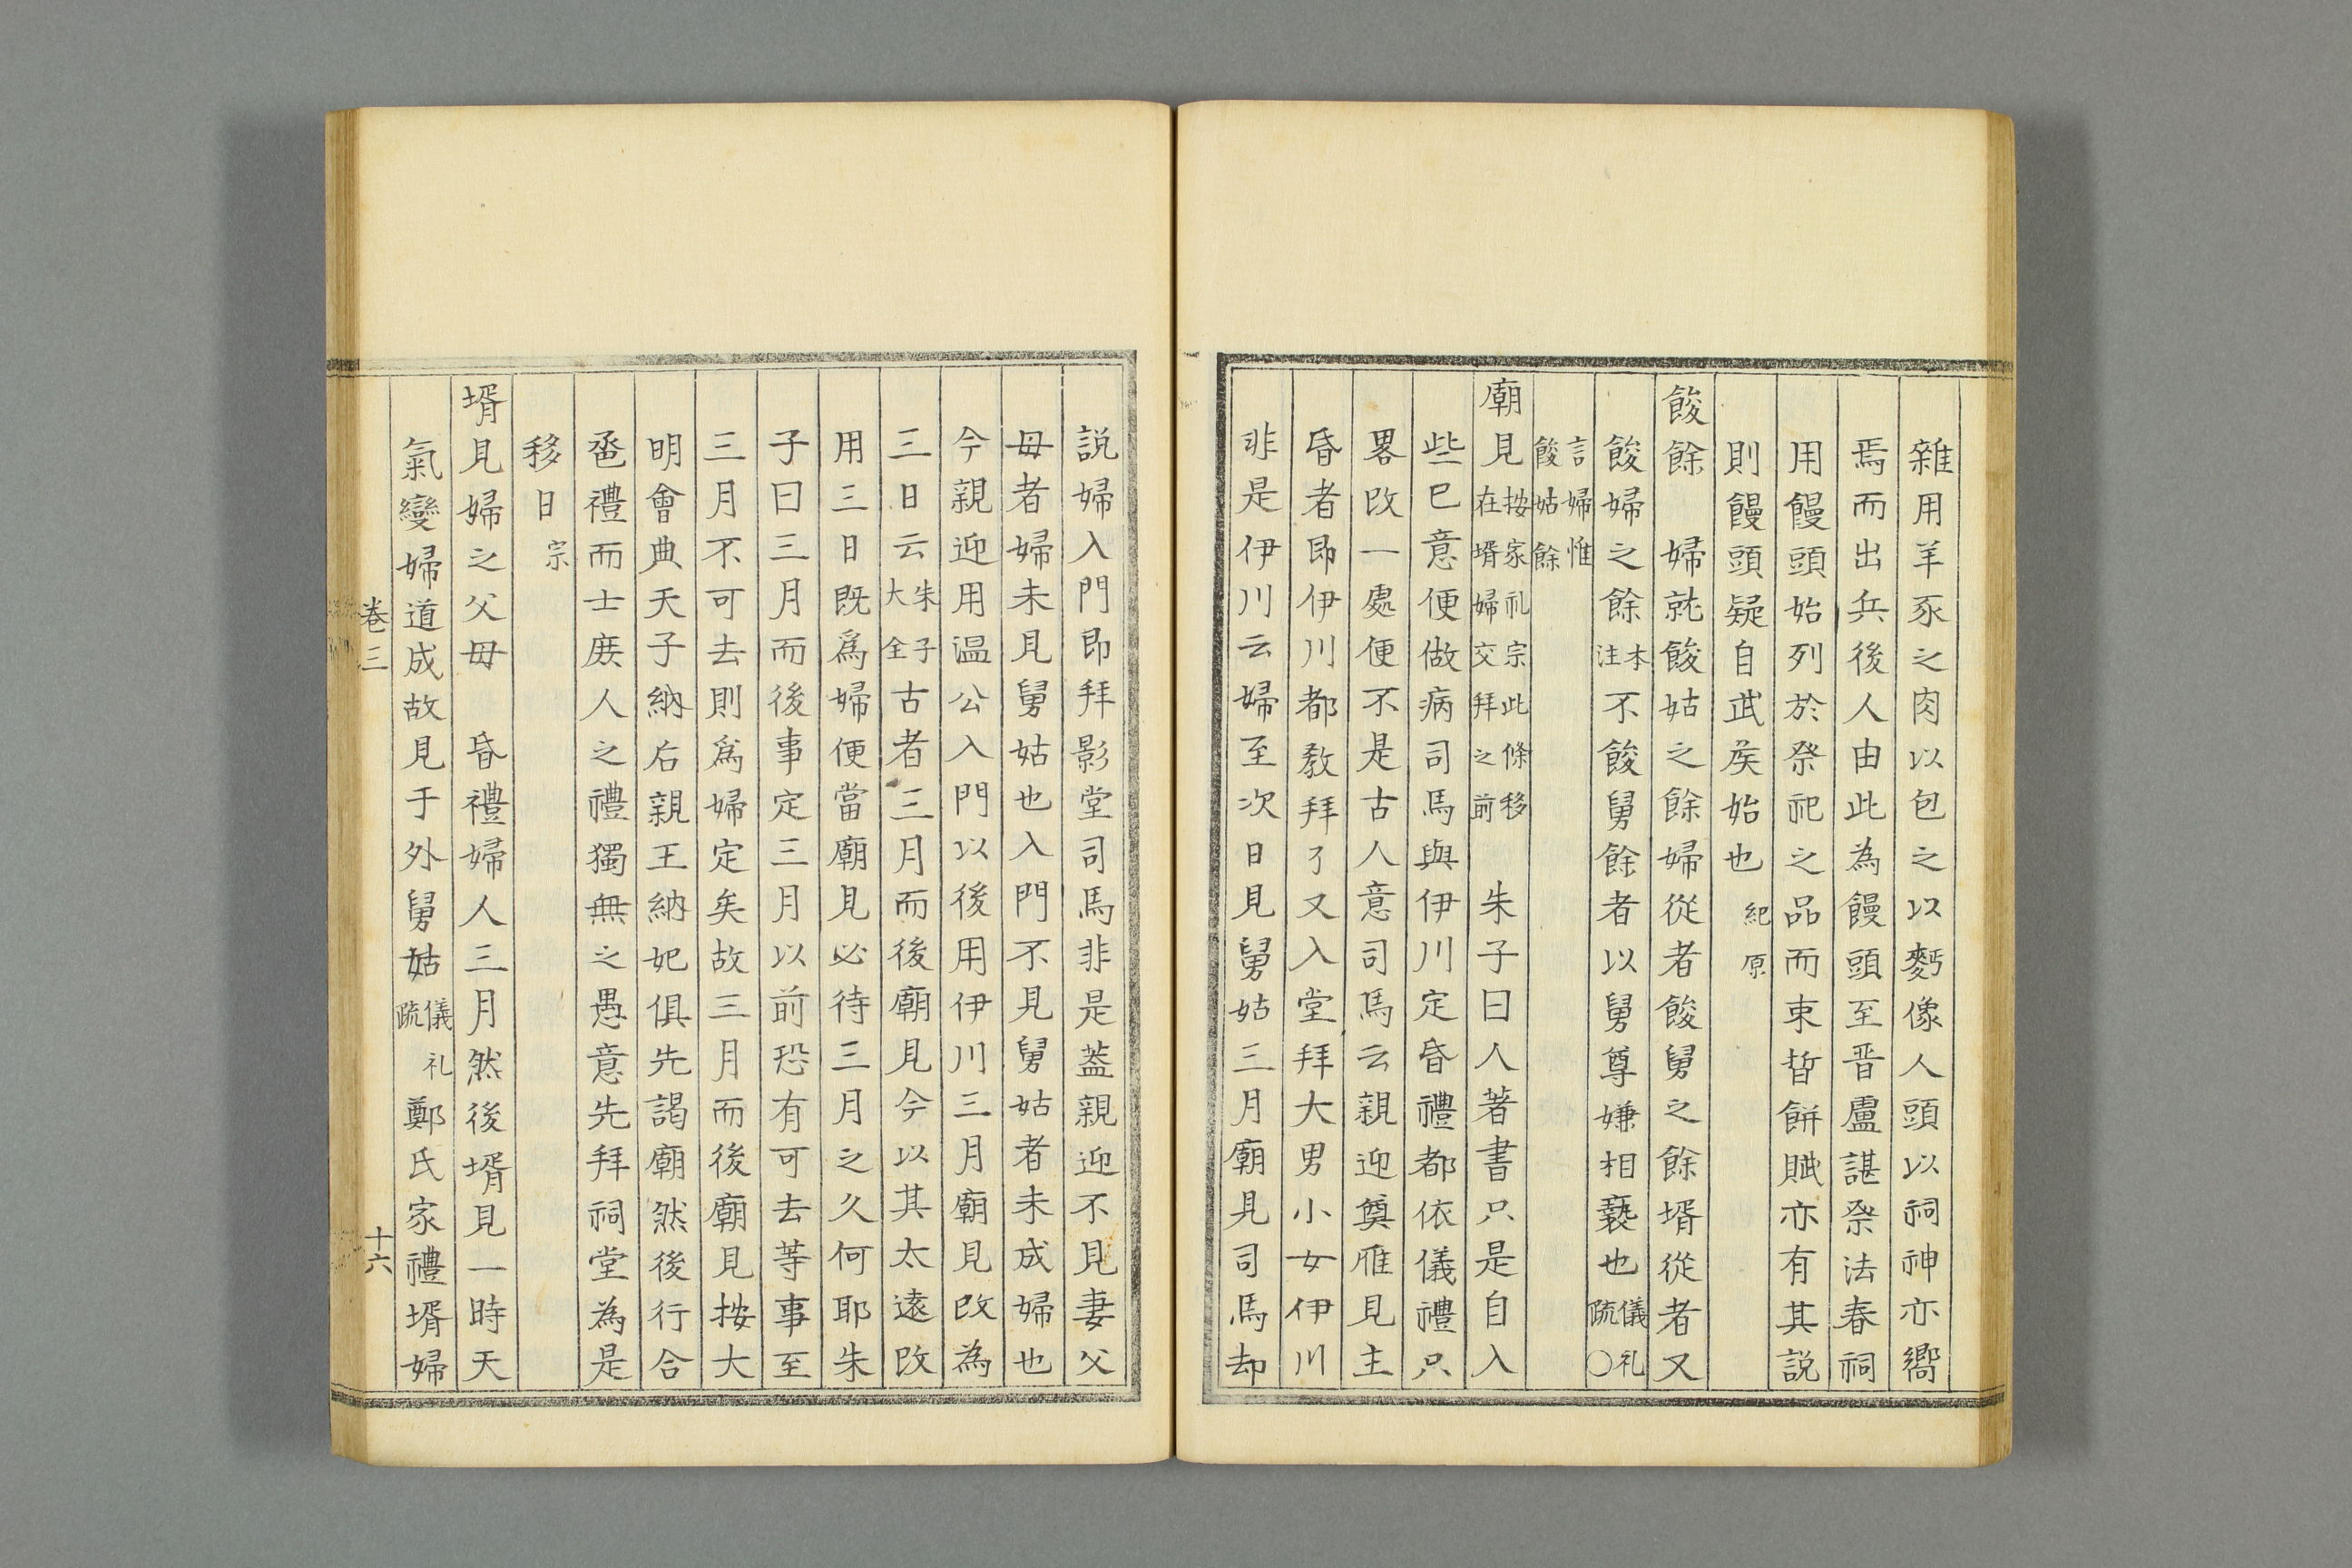 雜用羊豕之肉以包之以麪像人頭以祠神亦嚮
焉而出兵後人由此為饅頭至晋盧諶祭法春祠
用饅頭始列於祭祀之品而束晳餅賦亦有其說
則饅頭疑自武矦始也紀原
餕餘 婦就餕姑之餘婦從者餕舅之餘壻從者又
餕婦之餘本注不餕舅餘者以舅尊嫌相褻也儀礼疏○
言婦惟餕姑餘
廟見按家礼宗此條移在壻婦交拜之前 朱子曰人著書只是自入
些已意便做病司馬與伊川定昏禮都依儀禮只
畧改一處便不是古人意司馬云親迎奠雁見主
昏者即伊川都敎拜了又入堂拜大男小女伊川
非是伊川云婦至次日見舅姑三月廟見司馬却
說婦入門即拜影堂司馬非是盖親迎不見妻父
母者婦未見舅姑也入門不見舅姑者未成婦也
今親迎用温公入門以後用伊川三月廟見改為
三日云朱子大全古者三月而後廟見今以其太遠改
用三日旣爲婦便當廟見必待三月之久何耶朱
子曰三月而後事定三月以前恐有可去等事至
三月不可去則爲婦定矣故三月而後廟見按大
明會典天子納后親王納妃俱先謁廟然後行合
巹禮而士庶人之禮獨無之愚意先拜祠堂為是
移日宗
壻見婦之父母 昏禮婦人三月然後壻見一時天
氣變婦道成故見于外舅姑儀礼疏鄭氏家禮壻婦
卷三
十六